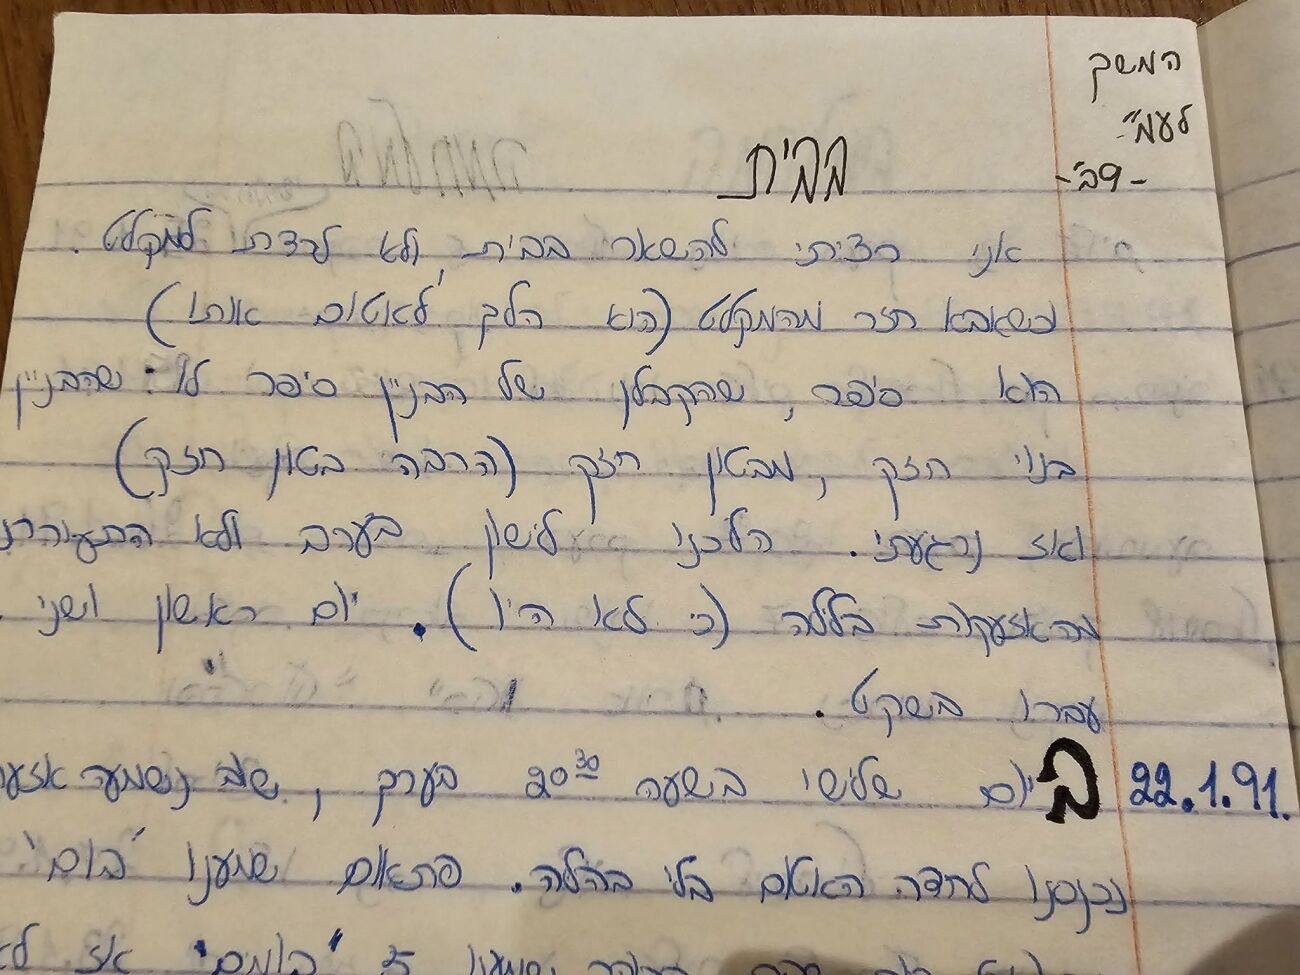 המשך
לעמ'
-9ב'-
בבית
אני רציתי להשאר בבית ולא לרדת למקלט.
כשאבא חזר מהמקלט (הוא הלך לאטום אותו)
הוא סיפר, שהקבלן של הבניין סיפר לו שהבניין
בנוי חזק, מבטון חזק (הרבה בטון חזק)
ואז נרגעתי. הלכנו לישון בערב ולא התעוררנו
מהאזעקות בלילה (כי לא היו). יום ראשון ושני
עברו בשקט.
22.1.91. ביום שלישי בשעה 20³⁰ בערך, שוב נשמעה
נכנסנו לחדר האטום בלי בהלה. פתאום שמענו "בום"
"בומים" אז